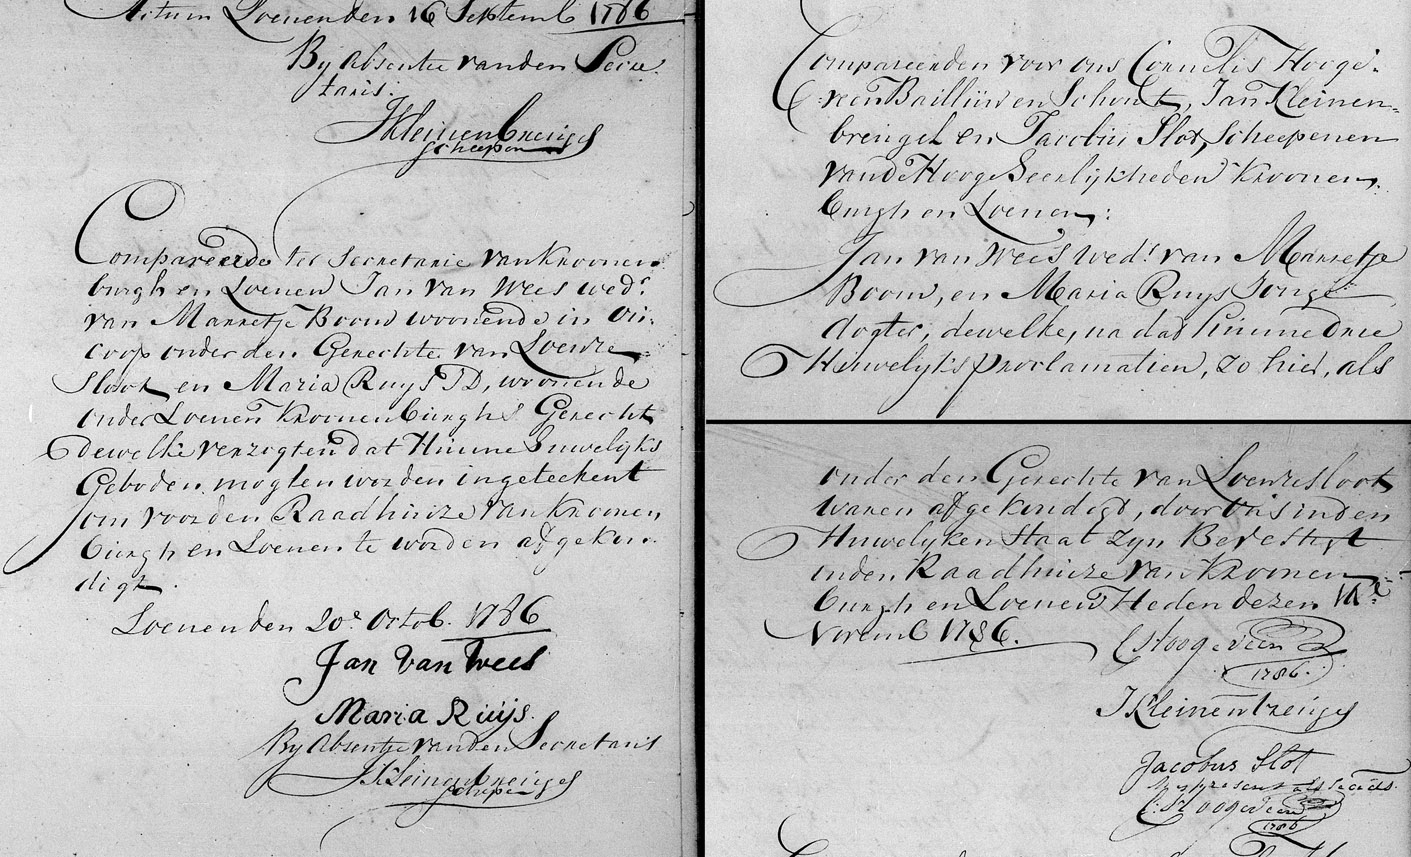 Actum Loenen den 16 Septemb 1786
By Absentie van den Secre
taris.
JKleinenbreugel
Scheepen
Compareerde ter Secretarie van Kroonen
burgh en Loenen Jan van Wees wedr.
van Marretje Boom woonende in Ou:
coop onder den Gerechte van Loenre
Sloot en Maria Ruys JD, woonende
onder Loenen Kroonenburghs Gerecht
dewelke verzogten dat Hunne Huwelijks
Geboden mogten worden ingeteekent
om voor den Raadhuize van Kroonen
burgh en Loenen te worden afgekon-
digt.
Loenen den 20e Octob. 1786
Jan van Wees
Maria Ruijs.
By Absentje van den Secretaris
JKleinenbreugel
Schepen
Compareerden voor ons Cornelis Hooge-
veen Bailluw en Schout, Jan Kleinen-
breugel en Jacobus Slot, Scheepenen
van de Hooge Heerlykheden Kroonen
burgh en Loenen:
Jan van Wees wedr. van Marretje
Boom, en Maria Ruys Jonge
dogter, dewelke, na dat hunne drie
Huwelyks proclamatien, zo hier, als
onder den Gerechte van Loenresloot
waren afgekondigd, door ons in den
Huwelyken Staat zyn Bevestigt
in den Raadhuize van Kroonen
burgh en Loenen Heden dezen
Novemb 1786.
CHoogeveen
1786.
JKleinenbreugel
Jacobus Slot
my present als Secrets.
C:Hoogeveen
1786